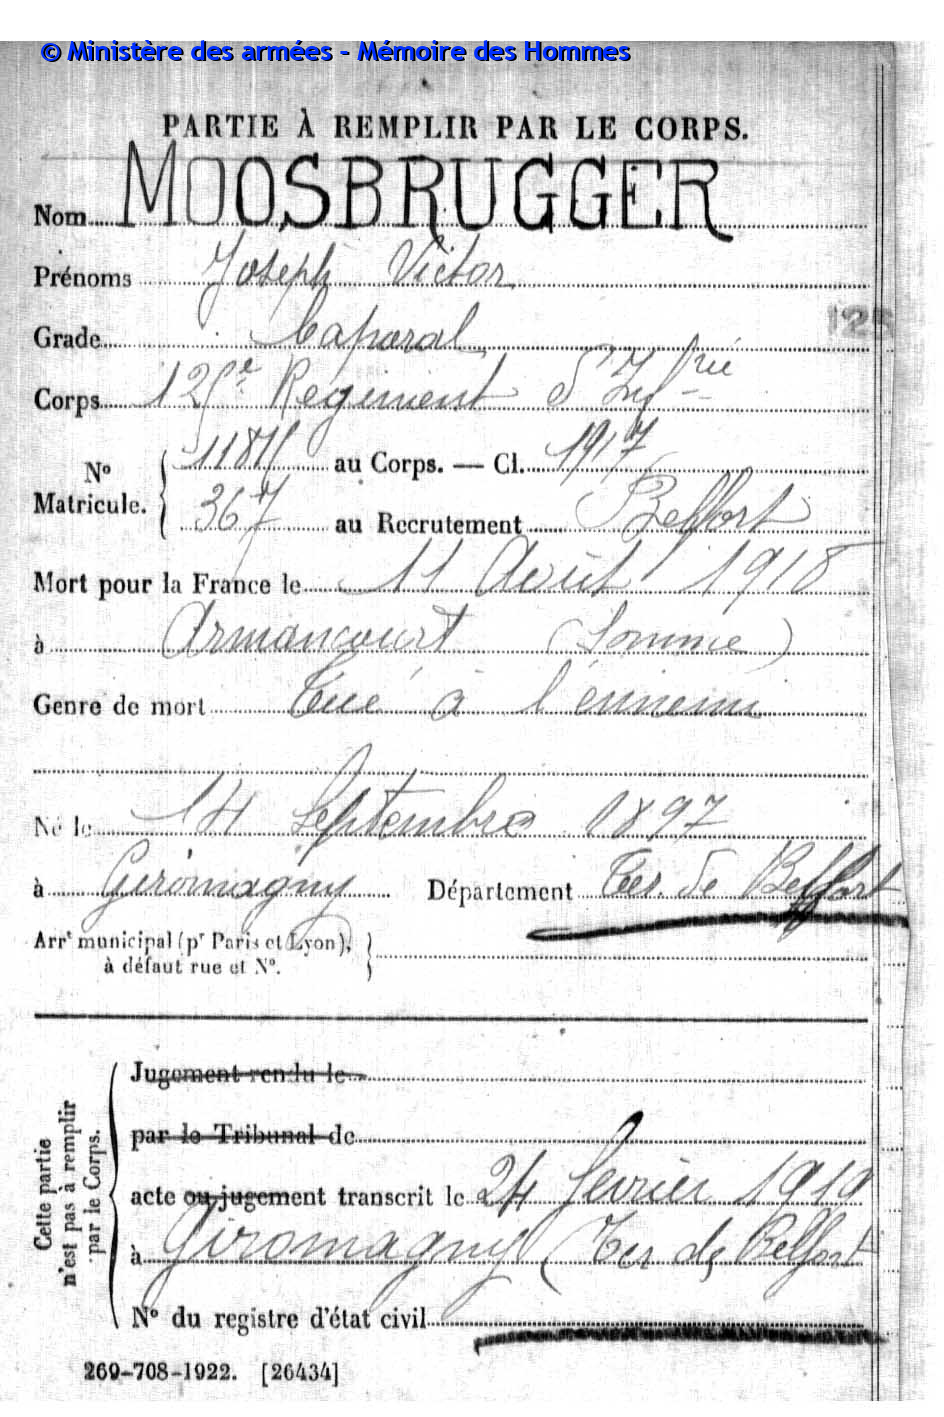 © Ministère des armées - Mémoire des Hommes
PARTIE À REMPLIR PAR LE CORPS.
Nom MOOSBRUGGER
Prénoms Joseph Victor
Grade Caporal
125
Corps 125e Régiment d'Infrie
N° Matricule. au Corps. — Cl. 1917
367 au Recrutement Belfort
Mort pour la France le 11 Août 1918
à Armancourt (Somme)
Genre de mort Tué à l'ennemi
Né le 14 Septembre 1897
à Giromagny Département Ter. de Belfort
Arrt municipal (pr Paris et Lyon),
à défaut rue et N°.
Cette partie
n'est pas à remplir
par le Corps.
Jugement rendu le
par le Tribunal de
acte ou jugement transcrit le 24 février 1919
à Giromagny (Ter de Belfort
N° du registre d'état civil
269-708-1922. [26434]